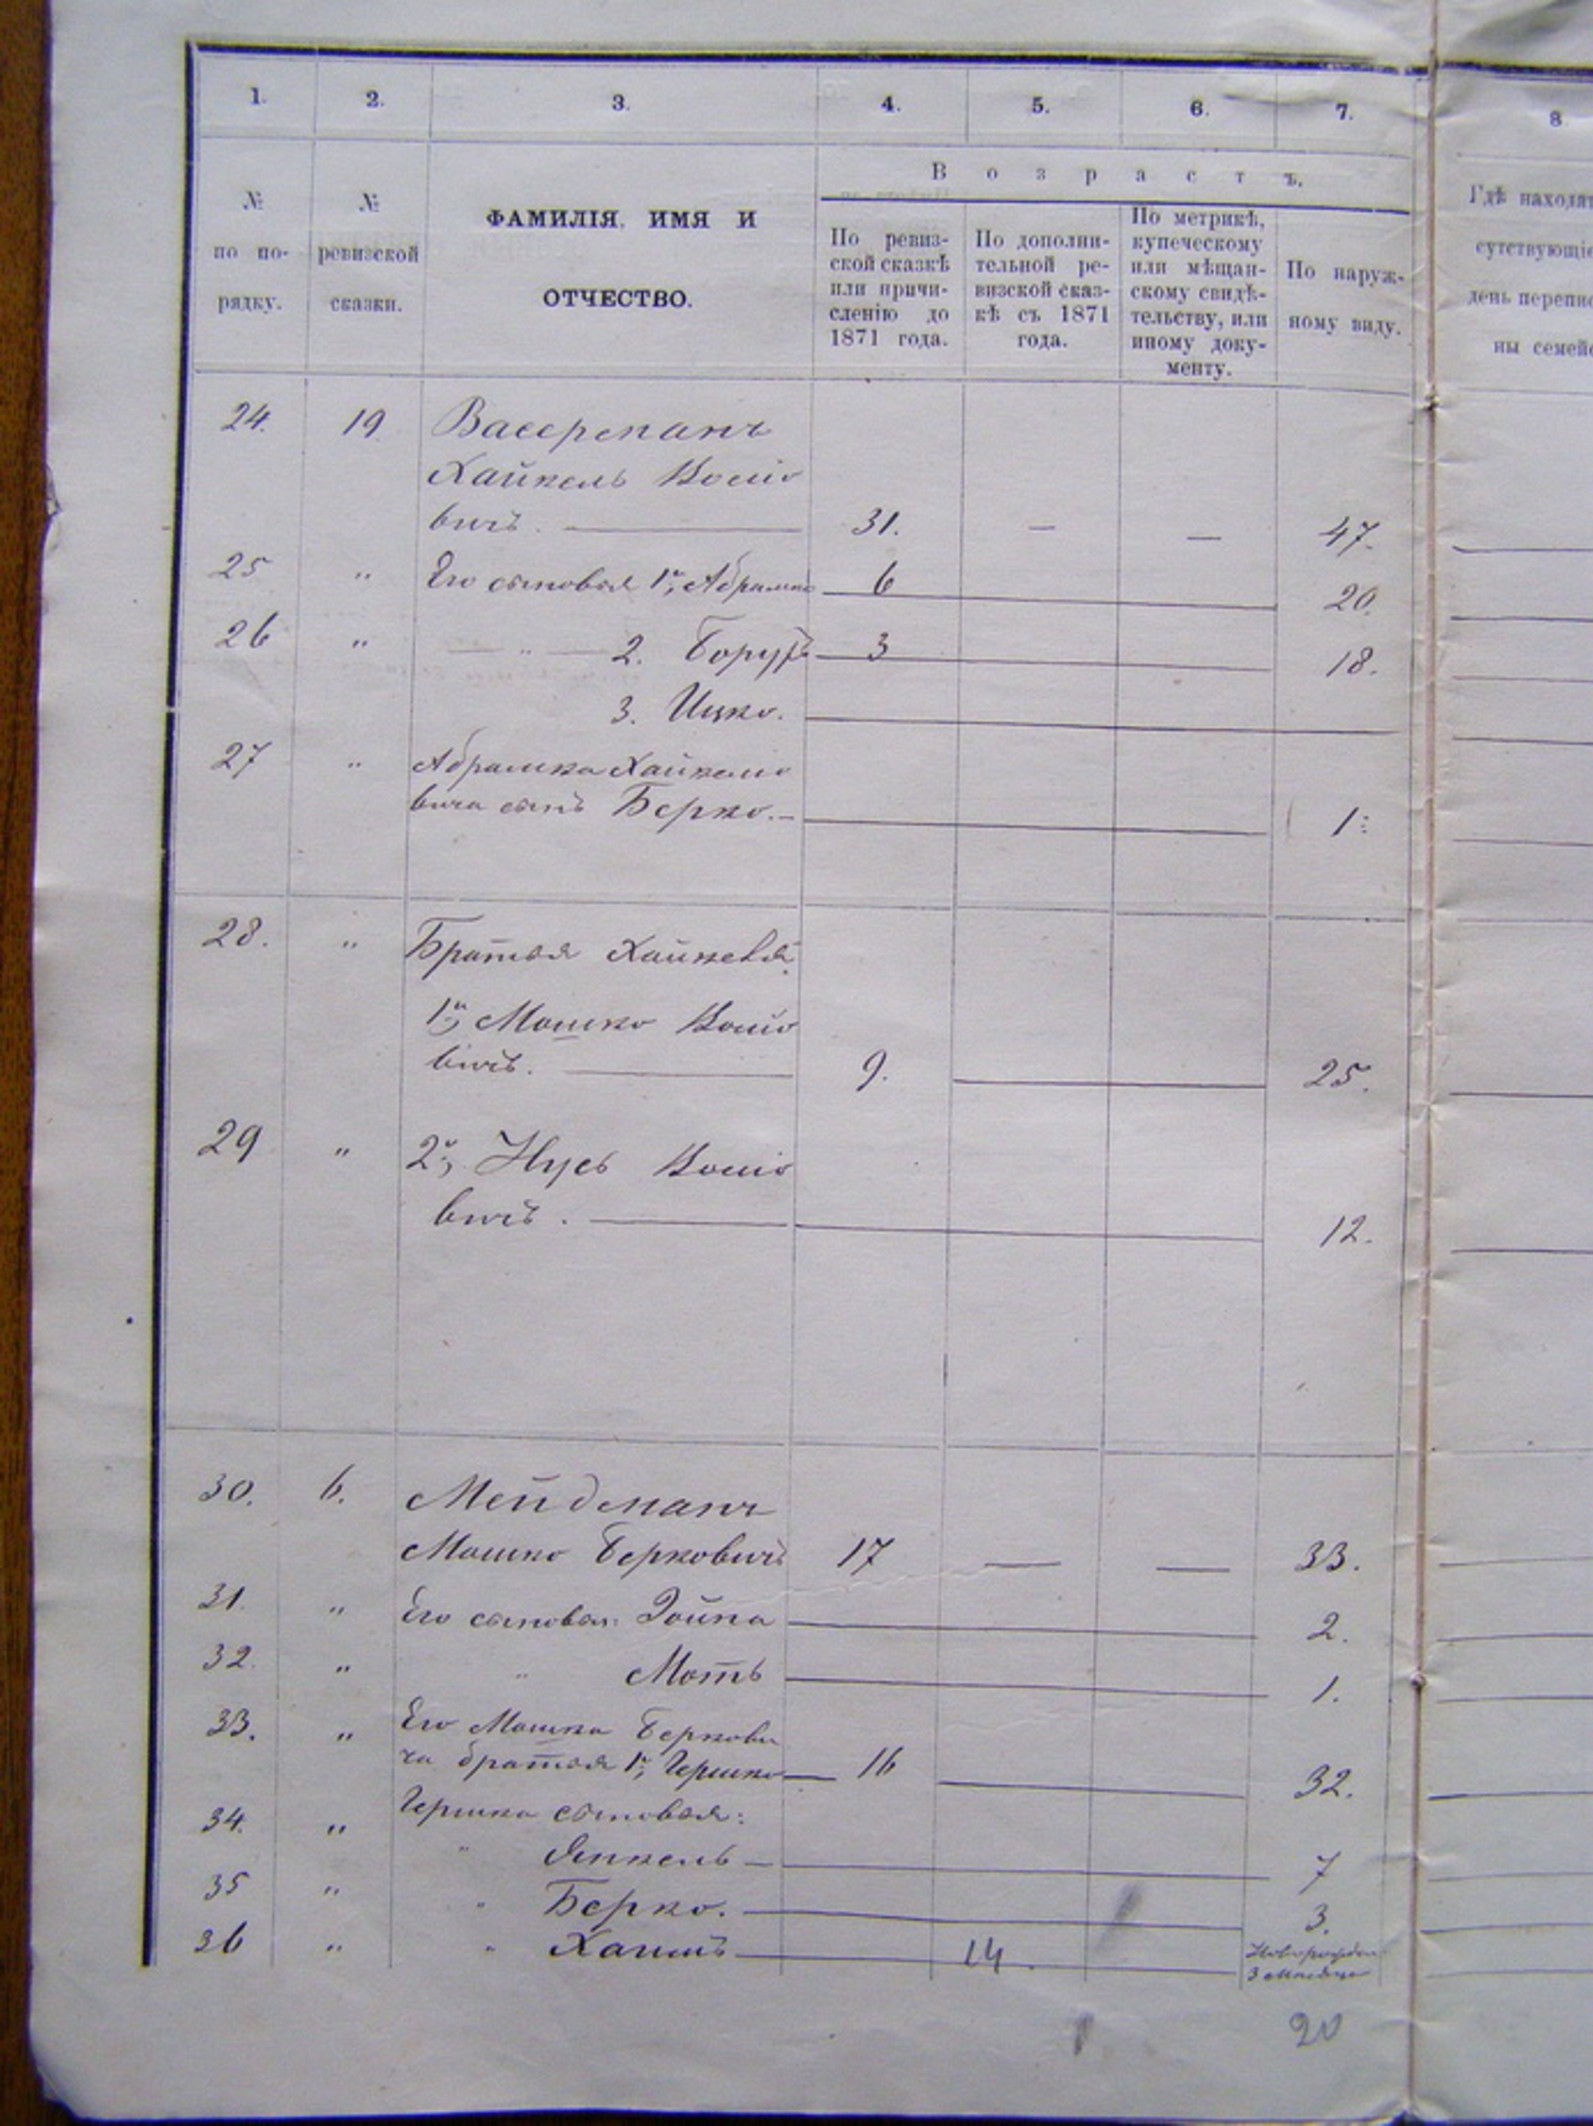 1. 2. 3. 4. 5. 6. 7. 8
№ по порядку.
№ ревизской сказки.
ФАМИЛІЯ, ИМЯ И
ОТЧЕСТВО.
Возрастъ.
По ревиз-
ской сказкѣ
или причи-
сленію до
1871 года.
По дополни-
тельной ре-
визской сказ-
кѣ съ 1871
года.
По метрикѣ,
купеческому
или мѣщан-
скому свидѣ-
тельству, или
иному доку-
менту.
По наруж-
ному виду.
Гдѣ находят
сутствующіе
день перепис
ны семейс
24. 19 Васерманъ
Хайкель
вичъ. 31. — — 47.
25 „ Его сыновья 1й, Абрамко 6 20.
26 „ — „ — 2. Борухъ 3 18.
3. Ицко.
27 „ Абрамка Хайкелiо
вича сынъ Берко. 1.
28. „ Братья Хайкеля:
1й, Мошко
вичъ. 9. 25.
29 „ 2й, Нусь
вичъ. 12.
30. 6. Мейдманъ
Мошко Берковичъ 17 — — 33.
31. „ Его сыновья: Дойна 2.
32. „ „ Моть 1.
33. „ Его Мошка Беркови
ча братья 1й, Гершко 16 32.
34. „ Гершка сыновья:
„ Янкель 7
35 „ „ Берко. 3.
36 „ „ Хаимъ 14. Новорожден
3 месяца
20